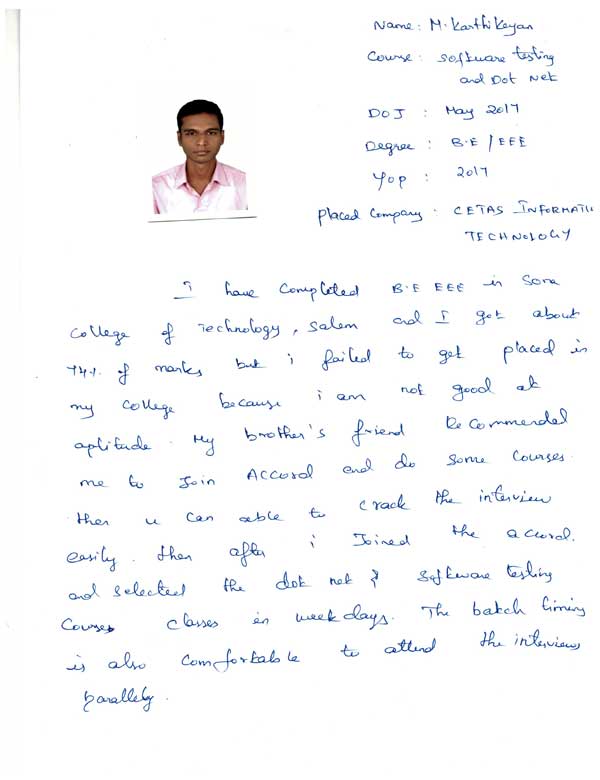 Name: M. Karthikeyan
Course: Software testing
and Dot Net
DOJ : May 2017
Degree : B.E / EEE
Yop : 2017
Placed Company : CETAS INFORMATI
TECHNOLOGY
I have Completed B.E EEE in Sona
College of Technology, Salem and I got about
74%. of marks but i failed to get placed in
my college because i am not good at
aptitude. My brother's friend Recommended
me to Join ACCORD and do some Courses.
then u can able to crack the interview
easily. then after i Joined the accord.
and selected the dot net & software testing
Courses classes in week days. The batch timing
is also comfortable to attend the interviews
parallely.